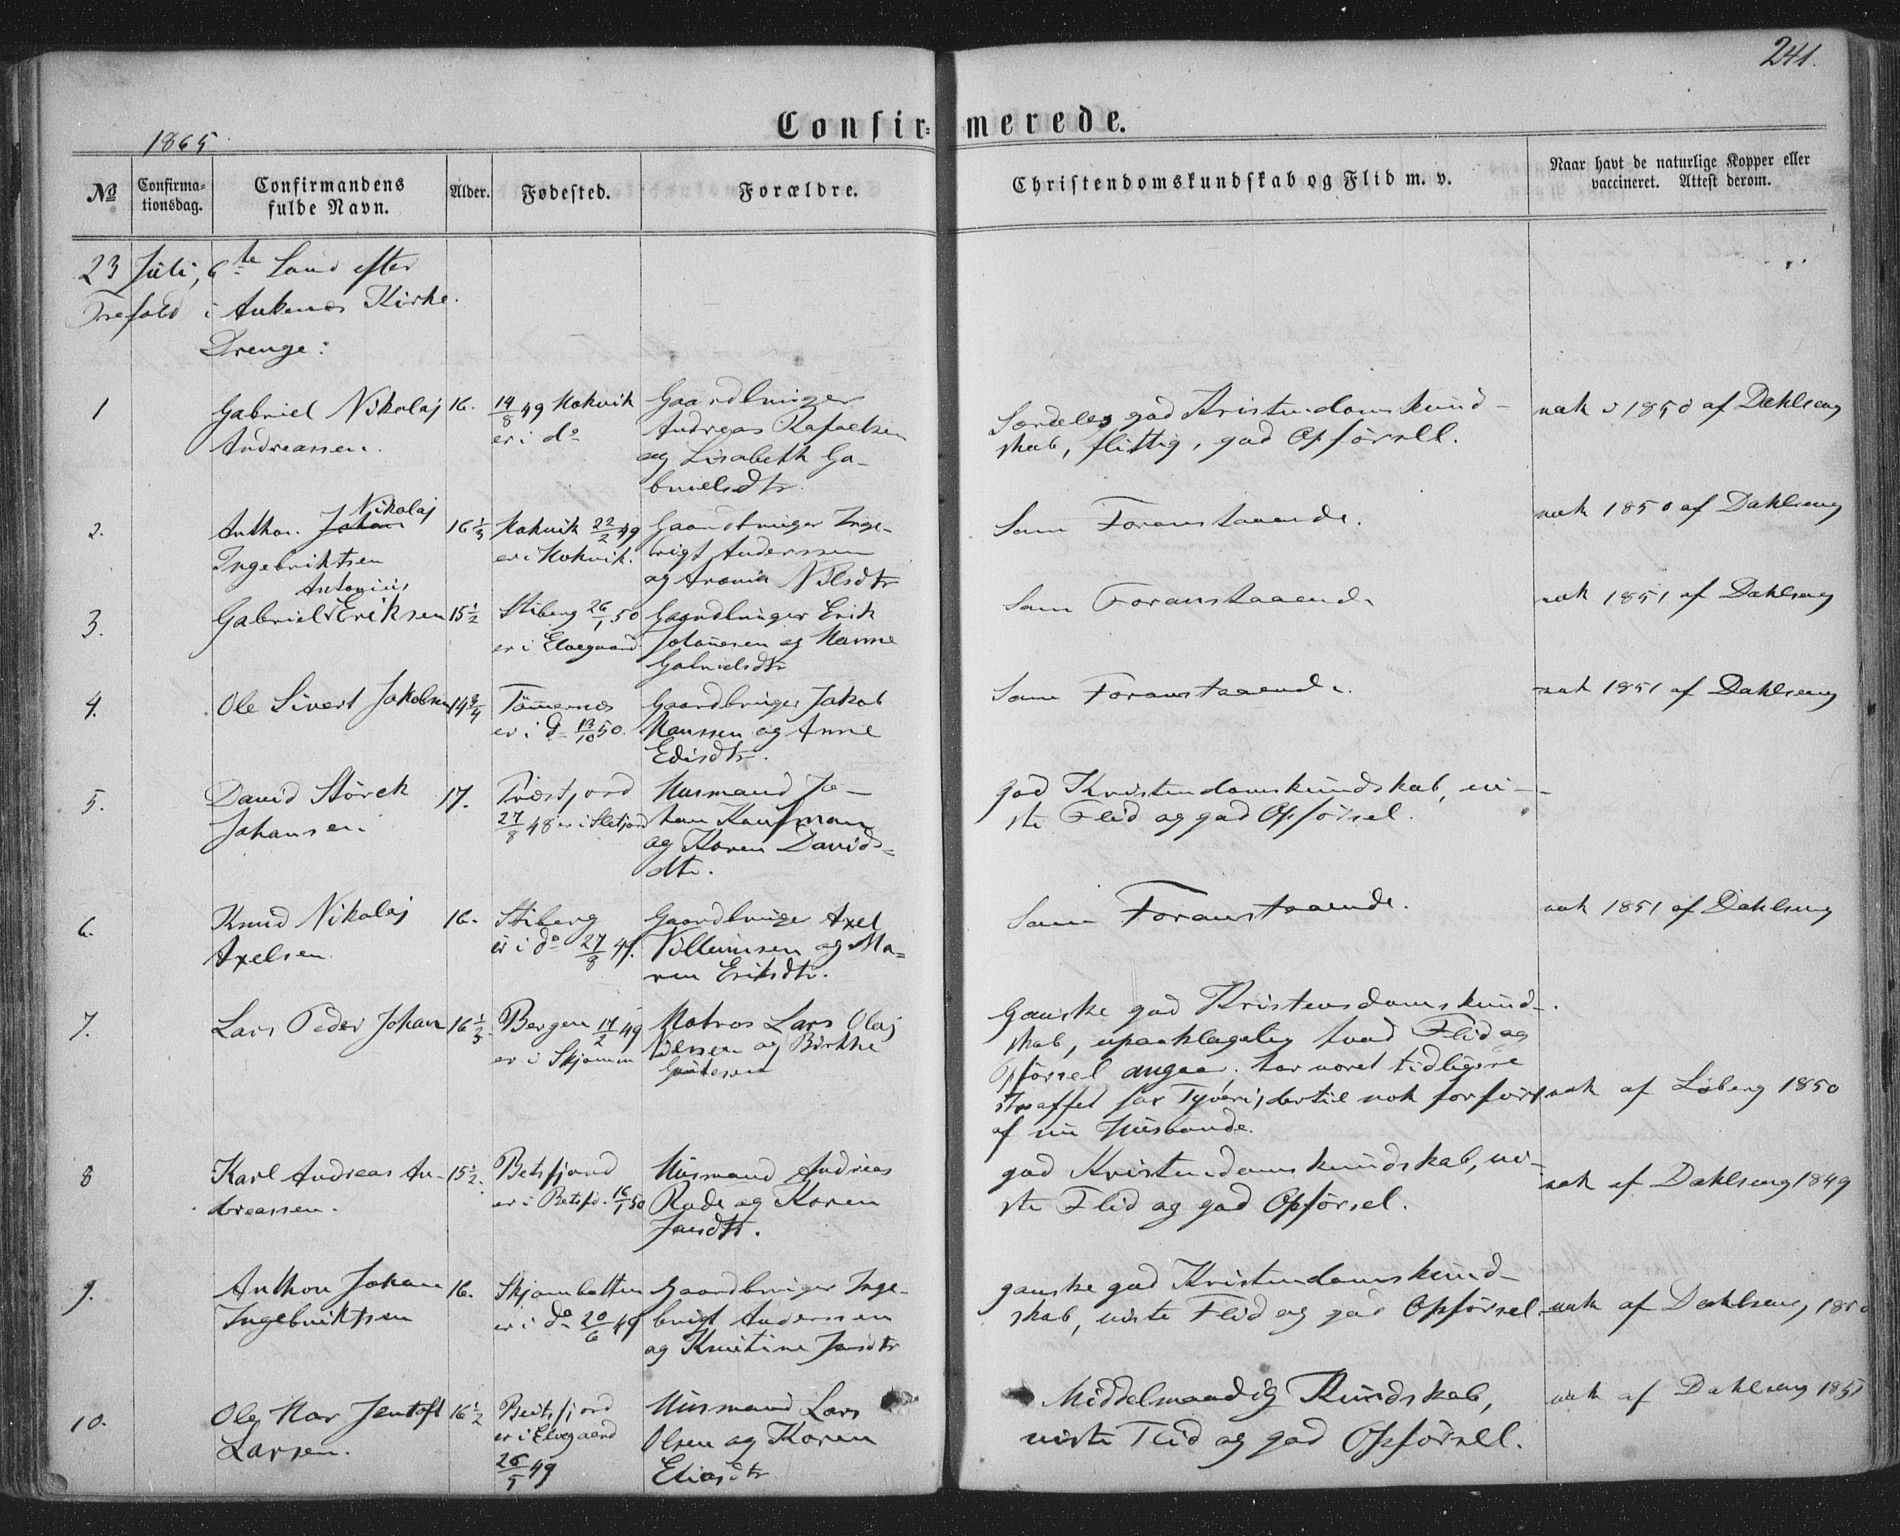 241.
Confir- merede.
1865
No
Confirma-
tionsdag.
Confirmandens
fulde Navn.
Alder.
Fødested.
Forældre.
Christendomskundskab og Flid m. v.
Naar havt de naturlige Kopper eller
vaccineret. Attest derom.
23 Juli, 6te Sønd efter
Trefold i Ankenes Kirke.
Drenge:
1
Gabriel Nikolaj
Andreassen.
16.
14/8 49 Kokvik
er i do
Gaardbruger
Andreas Rafaelsen
og Lisabeth Ga-
brielsdtr.
Særdeles god Kristendomskund-
skab, flittig, god Opførsel.
vak 1850 af Dahlseng
2.
Nikolaj
Anthon Johan
Ingebriktsen
16 1/3
Kokvik 22/2 49
er i Kokvik.
Gaardbruger Inge-
brigt Anderssen
og Nilsdtr
Som Foranstaaende.
vak 1850 af Dahlseng
3.
Antonius
Gabriel Eriksen
15 1/2
Stiberg 26/1 50
er i Elvegaard
Gaardbruger Erik
Johannesen og Hanne
Gabrielsdtr
Som Foranstaaende
vak 1851 af Dahlseng
4.
Ole Sivert Jakobsen
14 3/4
Tømmernes
er i do 13/10 50.
Gaardbruger Jakob
Hanssen og Anne
Edisdtr.
Som Foranstaaende.
vak 1851 af Dahlseng
5.
David Størck
Johansen
17.
27/8 48 er i Sletjord
Husmand Jo-
han Kaufman
og Karen Davids-
dtr.
god Kristendomskundskab, vi-
ste Flid og god Opførsel.
6.
Knud Nikolaj
Axelsen.
16.
Stiberg
er i do 27/8 49.
Gaardbruger Axel
Villumsen og Ma-
ren Eriksdtr.
Som Foranstaaende.
vak 1851 af Dahlseng
7.
Lars Peder Johan
16 1/3
Bergen 14/2 49
er i Skjomen
Matros Lars Olaj
Nilssen og Birthe
Ganske god Kristendomskund-
skab, upaaklagelig hvad Flid og
Opførsel angaar; har været tidligere
straffet for Tyveri, dertil nok forført
af sin Husbonde.
vak af Loberg 1850
8
Karl Andreas An-
dreassen.
15 1/2.
Betsfjord
er i Betsfd. 16/1 50
Husmand Andreas
Rade og Karen
Jansdtr.
god Kristendomskundskab, vi-
ste Flid og god Opførsel.
vak af Dahlseng 1849
9.
Anthon Johan
Ingebriktsen
16.
Skjombotten
er i do 20/6 49
Gaardbruger Inge-
brigt Anderssen
og Kristine Jansdtr
ganske god Kristendomskund-
skab, viste Flid og god Opførsel.
vak af Dahlseng 1850
10.
Ole Jentoft
Larsen.
16 1/2
Beitsfjord
er i Elvegaard
49
Husmand Lars
Olsen og Karen
Eliasdtr
Middelmaadig Kundskab,
viste Flid og god Opførsel.
vak af Dahlseng 1851